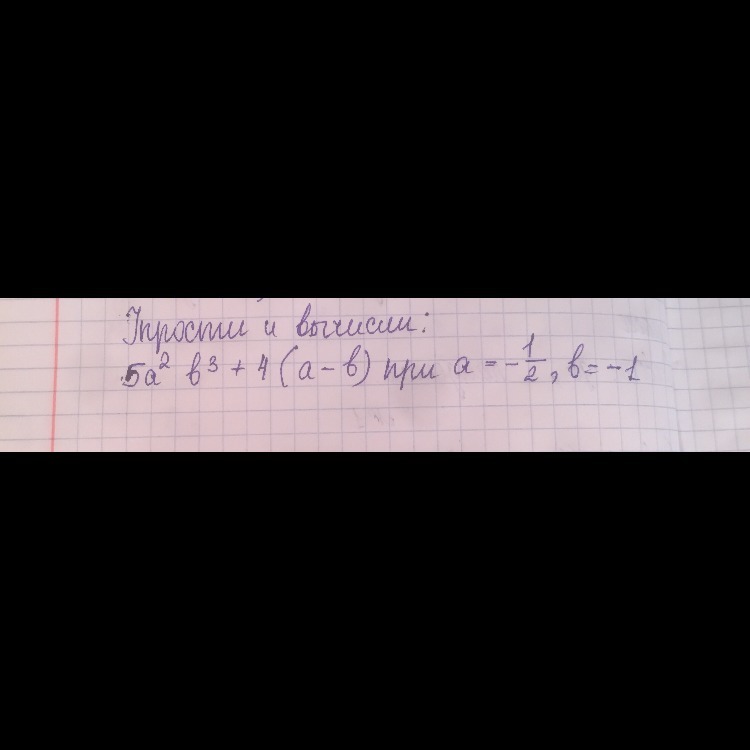 Упрости и вычисли:
5a² b³ + 4 (a - b) при a = -1/2, b = -1